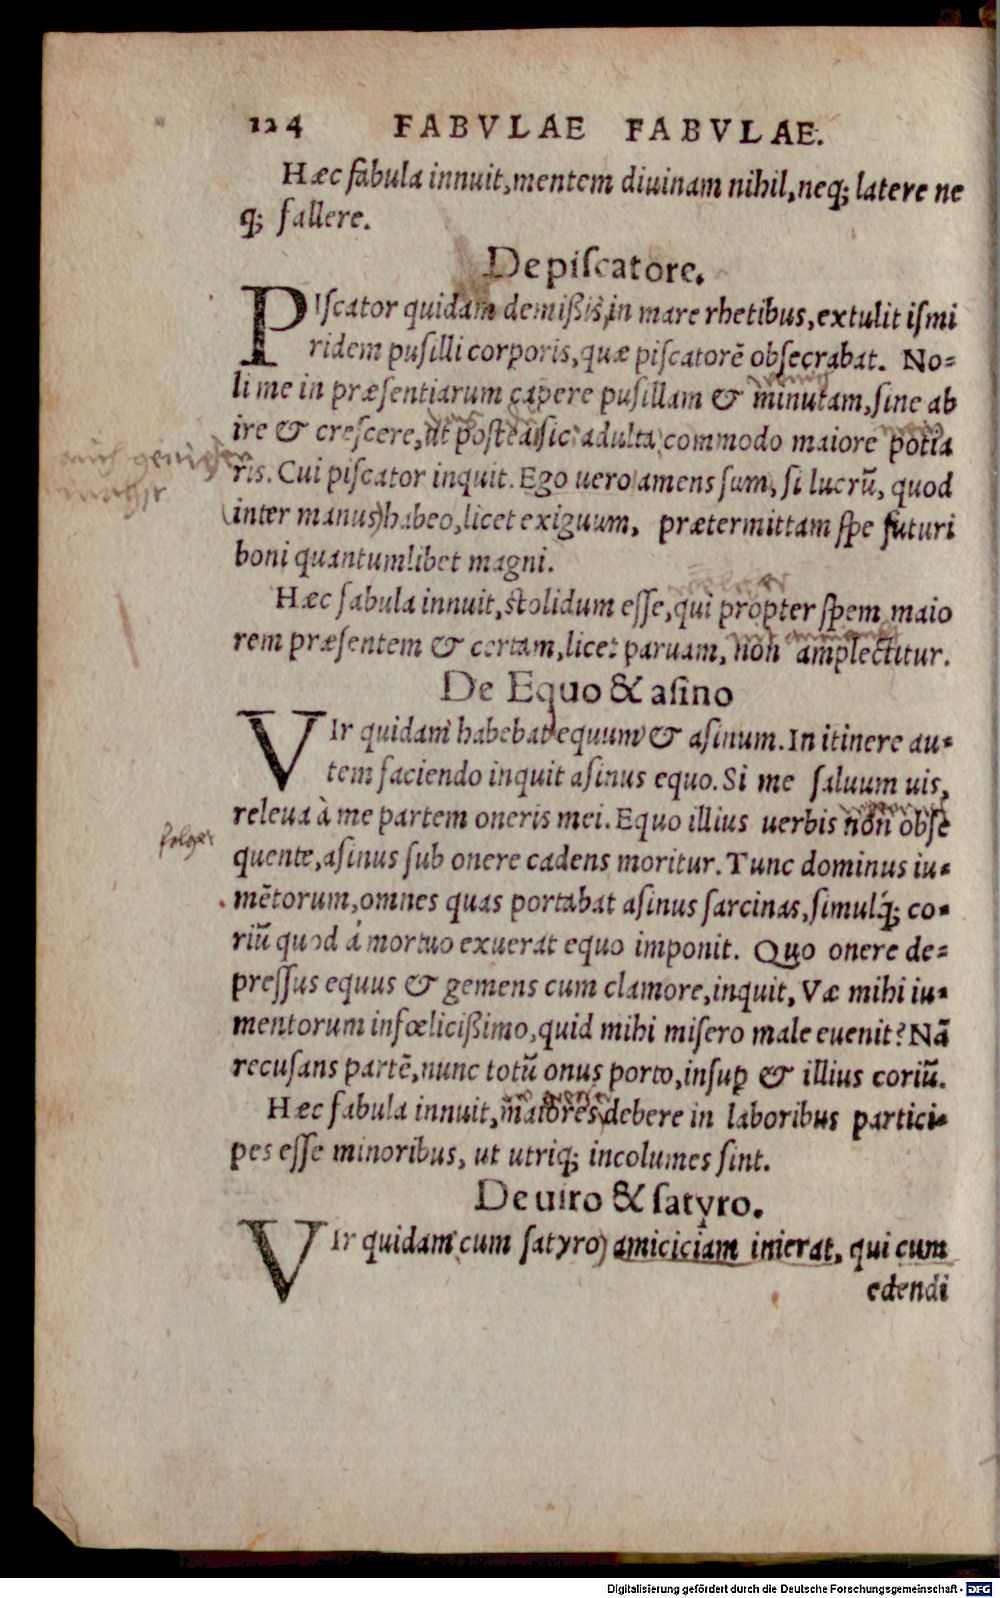 124 FABVLAE FABVLAE.
Hæc fabula innuit, mentem diuinam nihil, neq; latere ne
q; fallere.
De piſcatore.
PIſcator quidam demißis, in mare rhetibus, extulit iſmi
ridem puſilli corporis, quæ piſcatorē obſecrabat. No-
li me in præſentiarum capere puſillam & minutam, ſine ab
ire & creſcere, ut poſtea ſic adulta commodo maiore potia
ris. Cui piſcator inquit. Ego uero amens ſum, ſi lucrū, quod
inter manus habeo, licet exiguum, prætermittam ſpe futuri
boni quantumlibet magni.
Hæc fabula innuit, ſtolidum eſſe, qui propter ſpem maio
rem præſentem & certam, licet paruam, non amplectitur.
De Equo & aſino
VIr quidam habebat equum & aſinum. In itinere au-
tem faciendo inquit aſinus equo. Si me ſaluum uis,
releua à me partem oneris mei. Equo illius uerbis non obſe
folget
quente, aſinus ſub onere cadens moritur. Tunc dominus iu-
mētorum, omnes quas portabat aſinus ſarcinas, ſimulq́; co-
riū quod á mortuo exuerat equo imponit. Quo onere de-
preſſus equus & gemens cum clamore, inquit, Væ mihi iu-
mentorum infœlicißimo, quid mihi miſero male euenit? Nā
recuſans partē, nunc totū onus porto, inſuꝑ & illius coriū.
Hæc fabula innuit, maiores debere in laboribus partici-
pes eſſe minoribus, ut utriq; incolumes ſint.
De uiro & ſatyro.
VIr quidam cum ſatyro amiciciam inierat, qui cum
edendi
Digitalisierung gefördert durch die Deutsche Forschungsgemeinschaft - DFG